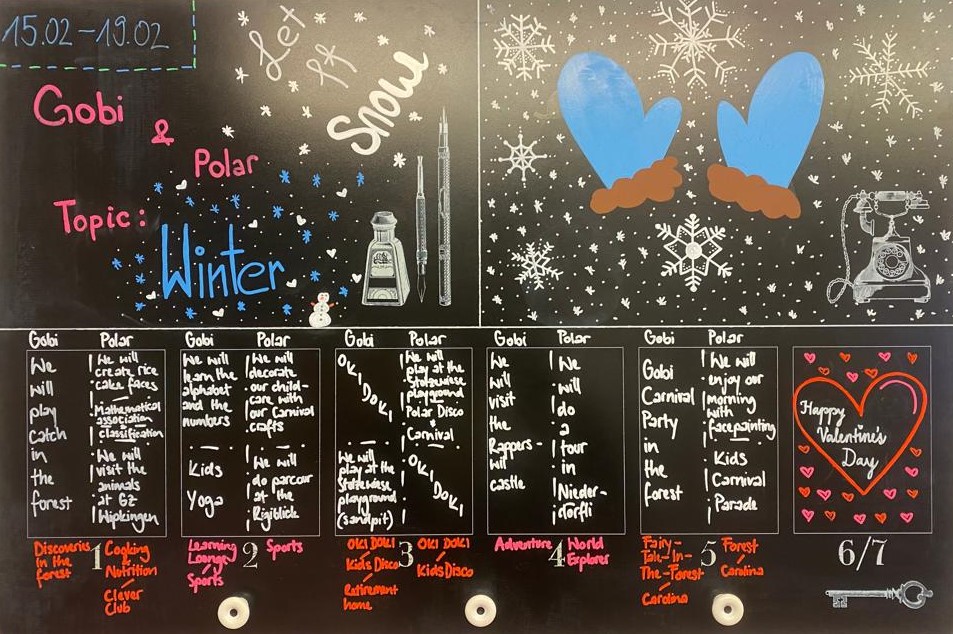 15.02 – 19.02
Let
It
Snow
Gobi
&
Polar
Topic:
Winter
Gobi Polar
We
will
play
catch
in
the
forest
We will
create rice
cake faces
—
Mathematical
association
classification
—
We will
visit the
animals
at GZ
Wipkingen
1
Discoveries
in the
forest
Cooking
&
Nutrition
Clever
Club
Gobi Polar
We will
learn the
alphabet
and the
numbers
Kids
Yoga
We will
decorate
our child-
care with
our Carnival
crafts
We will
do parcour
at the
Rigiblick
2
Learning
Lounge
Sports
Sports
Gobi Polar
OKIDOKI
We will
play at the
Stolzewiese
playground
(sandpit)
We will
play at the
Stolzewiese
playground
Polar Disco
+
Carnival
OKIDOKI
3
OKI DOKI
Kids Disco
Retirement
home
OKI DOKI
Kids Disco
Gobi Polar
We
will
visit
the
Rappers-
will
castle
We
will
do
a
tour
in
Nieder-
dorfli
4
Adventure
World
Explorer
Gobi Polar
Gobi
Carnival
Party
in
the
forest
We will
enjoy our
morning
with
facepainting
Kids
Carnival
Parade
5
Fairy-
Tale-In-
The-Forest
Carolina
Forest
Carolina
Happy
Valentine's
Day
6/7